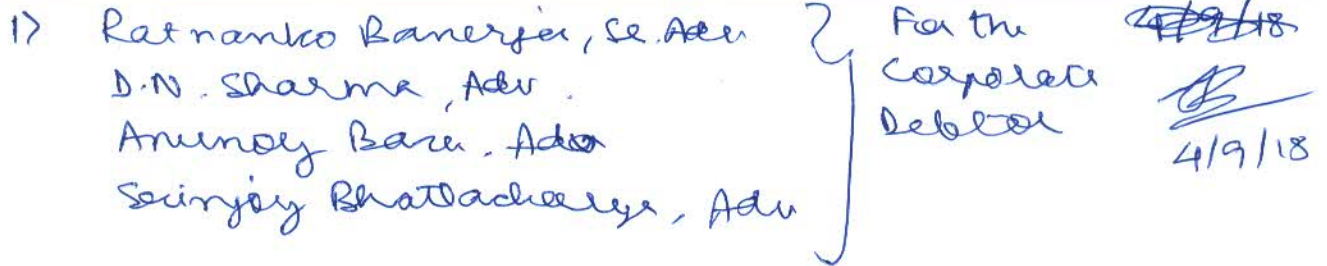 1) Ratnanko Banerjee, Sr. Adv
D.N. Sharma, Adv.
Anunoy Basu. Adv
Srinjoy Bhattacharya, Adv
For the
Corporate
Debtor
4/9/18
4/9/18